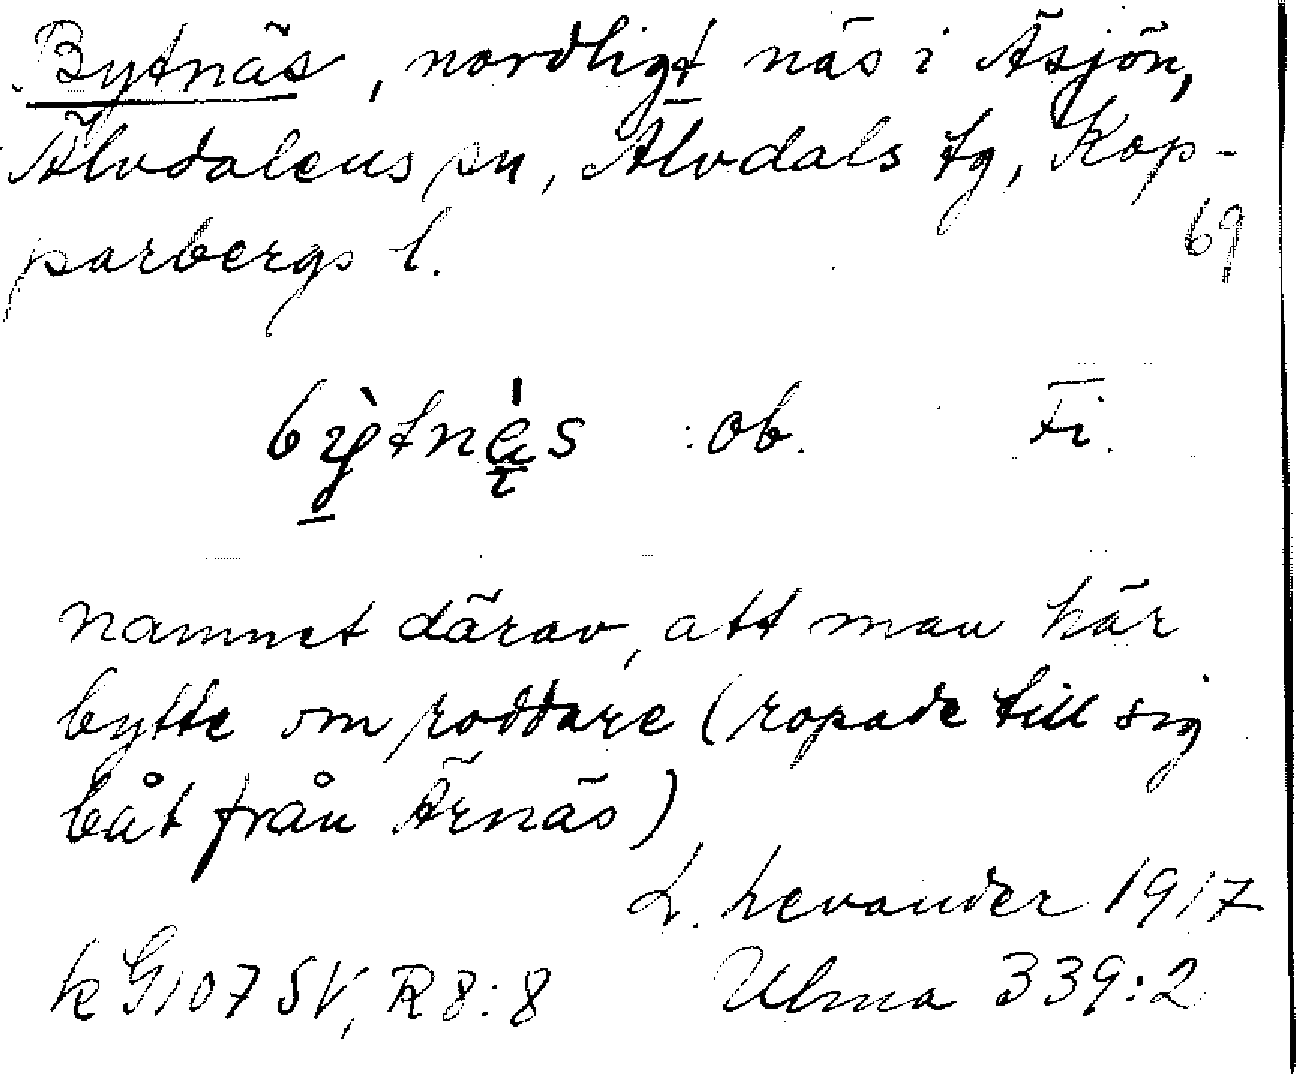 Bytnäs, nordligt näs i Äsjön,
Älvdalens sn, Älvdals tg, Kop-
parbergs l.
69
ob. Fi.
namnet därav, att man här
bytte om roddare (ropade till sig
båt från Ärnäs)
L. Levander 1917
k G107 SV, R8:8 Ulma 339:2